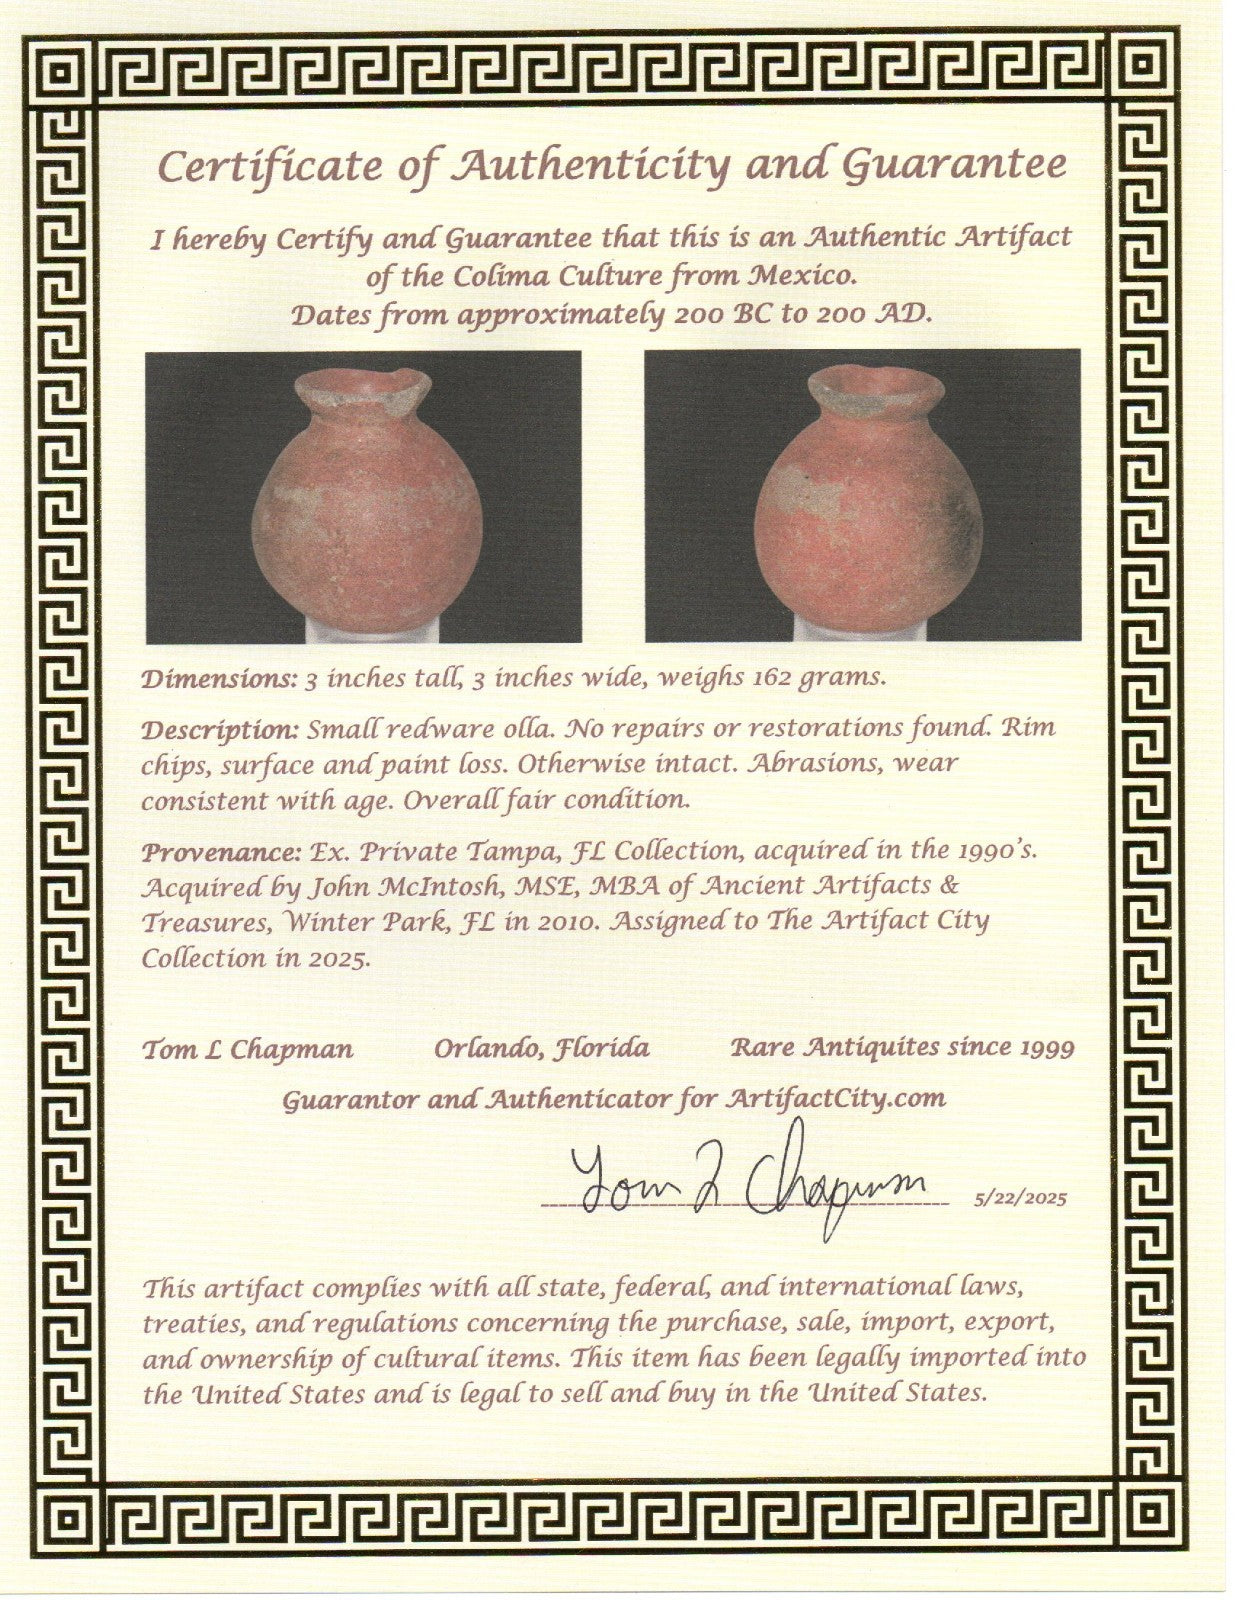 Certificate of Authenticity and Guarantee
I hereby Certify and Guarantee that this is an Authentic Artifact
of the Colima Culture from Mexico.
Dates from approximately 200 BC to 200 AD.
Dimensions: 3 inches tall, 3 inches wide, weighs 162 grams.
Description: Small redware olla. No repairs or restorations found. Rim
chips, surface and paint loss. Otherwise intact. Abrasions, wear
consistent with age. Overall fair condition.
Provenance: Ex. Private Tampa, FL Collection, acquired in the 1990's.
Acquired by John McIntosh, MSE, MBA of Ancient Artifacts &
Treasures, Winter Park, FL in 2010. Assigned to The Artifact City
Collection in 2025.
Tom L Chapman Orlando, Florida Rare Antiquites since 1999
Guarantor and Authenticator for ArtifactCity.com
Tom L Chapman 5/22/2025
This artifact complies with all state, federal, and international laws,
treaties, and regulations concerning the purchase, sale, import, export,
and ownership of cultural items. This item has been legally imported into
the United States and is legal to sell and buy in the United States.